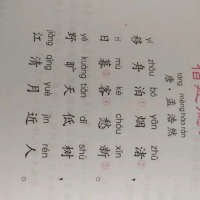 táng mèng hào rán
唐·孟浩然
yí zhōu bó yān zhǔ
移舟泊①烟渚②，
rì mù kè chóu xīn
日暮客愁新。
yě kuàng tiān dī shù
野旷天低树，
jiāng qīng yuè jìn rén
江清月近人。